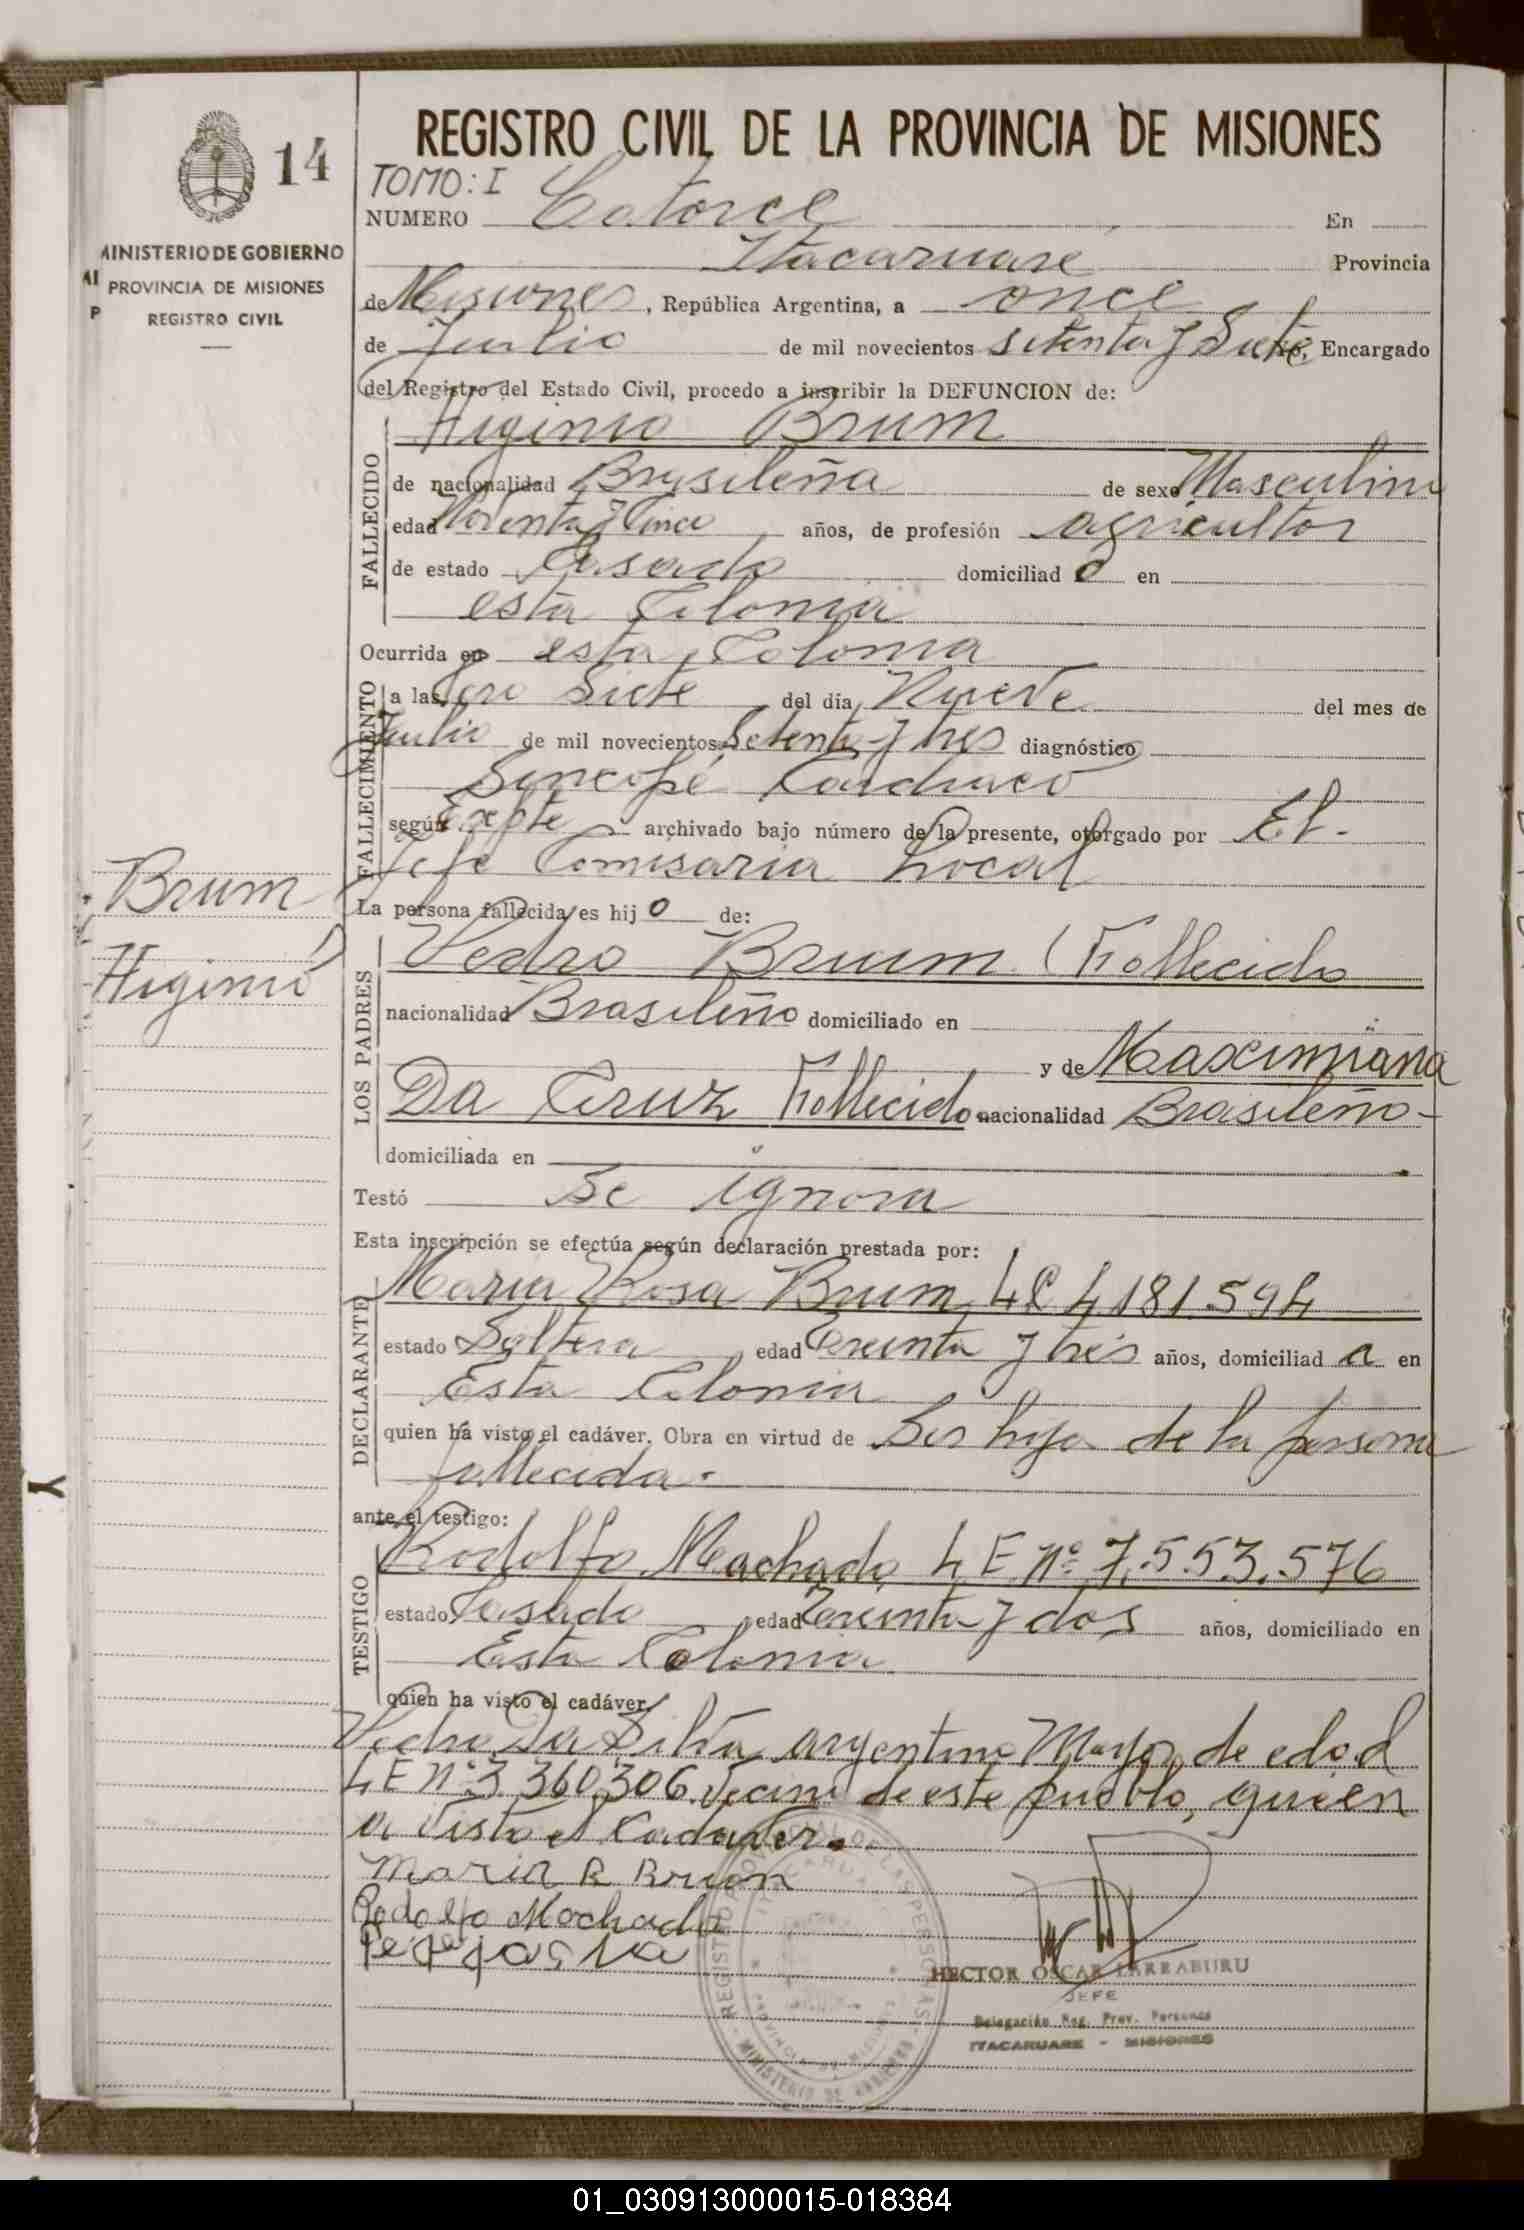 REGISTRO CIVIL DE LA PROVINCIA DE MISIONES
14
TOMO: I
NUMERO Catorce En
MINISTERIO DE GOBIERNO
PROVINCIA DE MISIONES
REGISTRO CIVIL
Itacaruaré Provincia
de Misiones, República Argentina, a once
de Julio de mil novecientos setenta y Siete, Encargado
del Registro del Estado Civil, procedo a inscribir la DEFUNCION de:
FALLECIDO
Higinio Brum
de nacionalidad Brasileña de sexo Masculino
edad Noventa y Cinco años, de profesión agricultor
de estado Casado domiciliad o en
esta Colonia
Ocurrida en esta Colonia
FALLECIMIENTO
a las Siete del día Nueve del mes de
Julio de mil novecientos Setenta y tres diagnóstico
Sincopé Cardiaco
según Expte archivado bajo número de la presente, otorgado por El
Jefe Comisaria Local
Brum
Higinio
La persona fallecida es hij o de:
LOS PADRES
Pedro Brum (Fallecido
nacionalidad Brasileño domiciliado en
y de Maximiana
Da Cruz Fallecido nacionalidad Brasileño-
domiciliada en
Testó Se ignora
Esta inscripción se efectúa según declaración prestada por:
DECLARANTE
Maria Rosa Brum LC 4.181.594
estado Soltera edad Treinta y tres años, domiciliad a en
Esta Colonia
quien há visto el cadáver. Obra en virtud de Ser hija de la persona
fallecida.
ante el testigo:
TESTIGO
Rodolfo Machado L E Nº 7.553.576
estado Casado edad Treinta y dos años, domiciliado en
Esta Colonia
quien ha visto el cadáver
Pedro Da Silva argentino Mayor de edad
L E nº 3.360.306. Vecino de este pueblo, quien
a Visto el Cadaver.
Maria R Brum
Rodolfo Machado
HECTOR OSCAR LARRABURU
JEFE
Delegación Reg. Prov. Personas
ITACARUARE - MISIONES
01_030913000015-018384